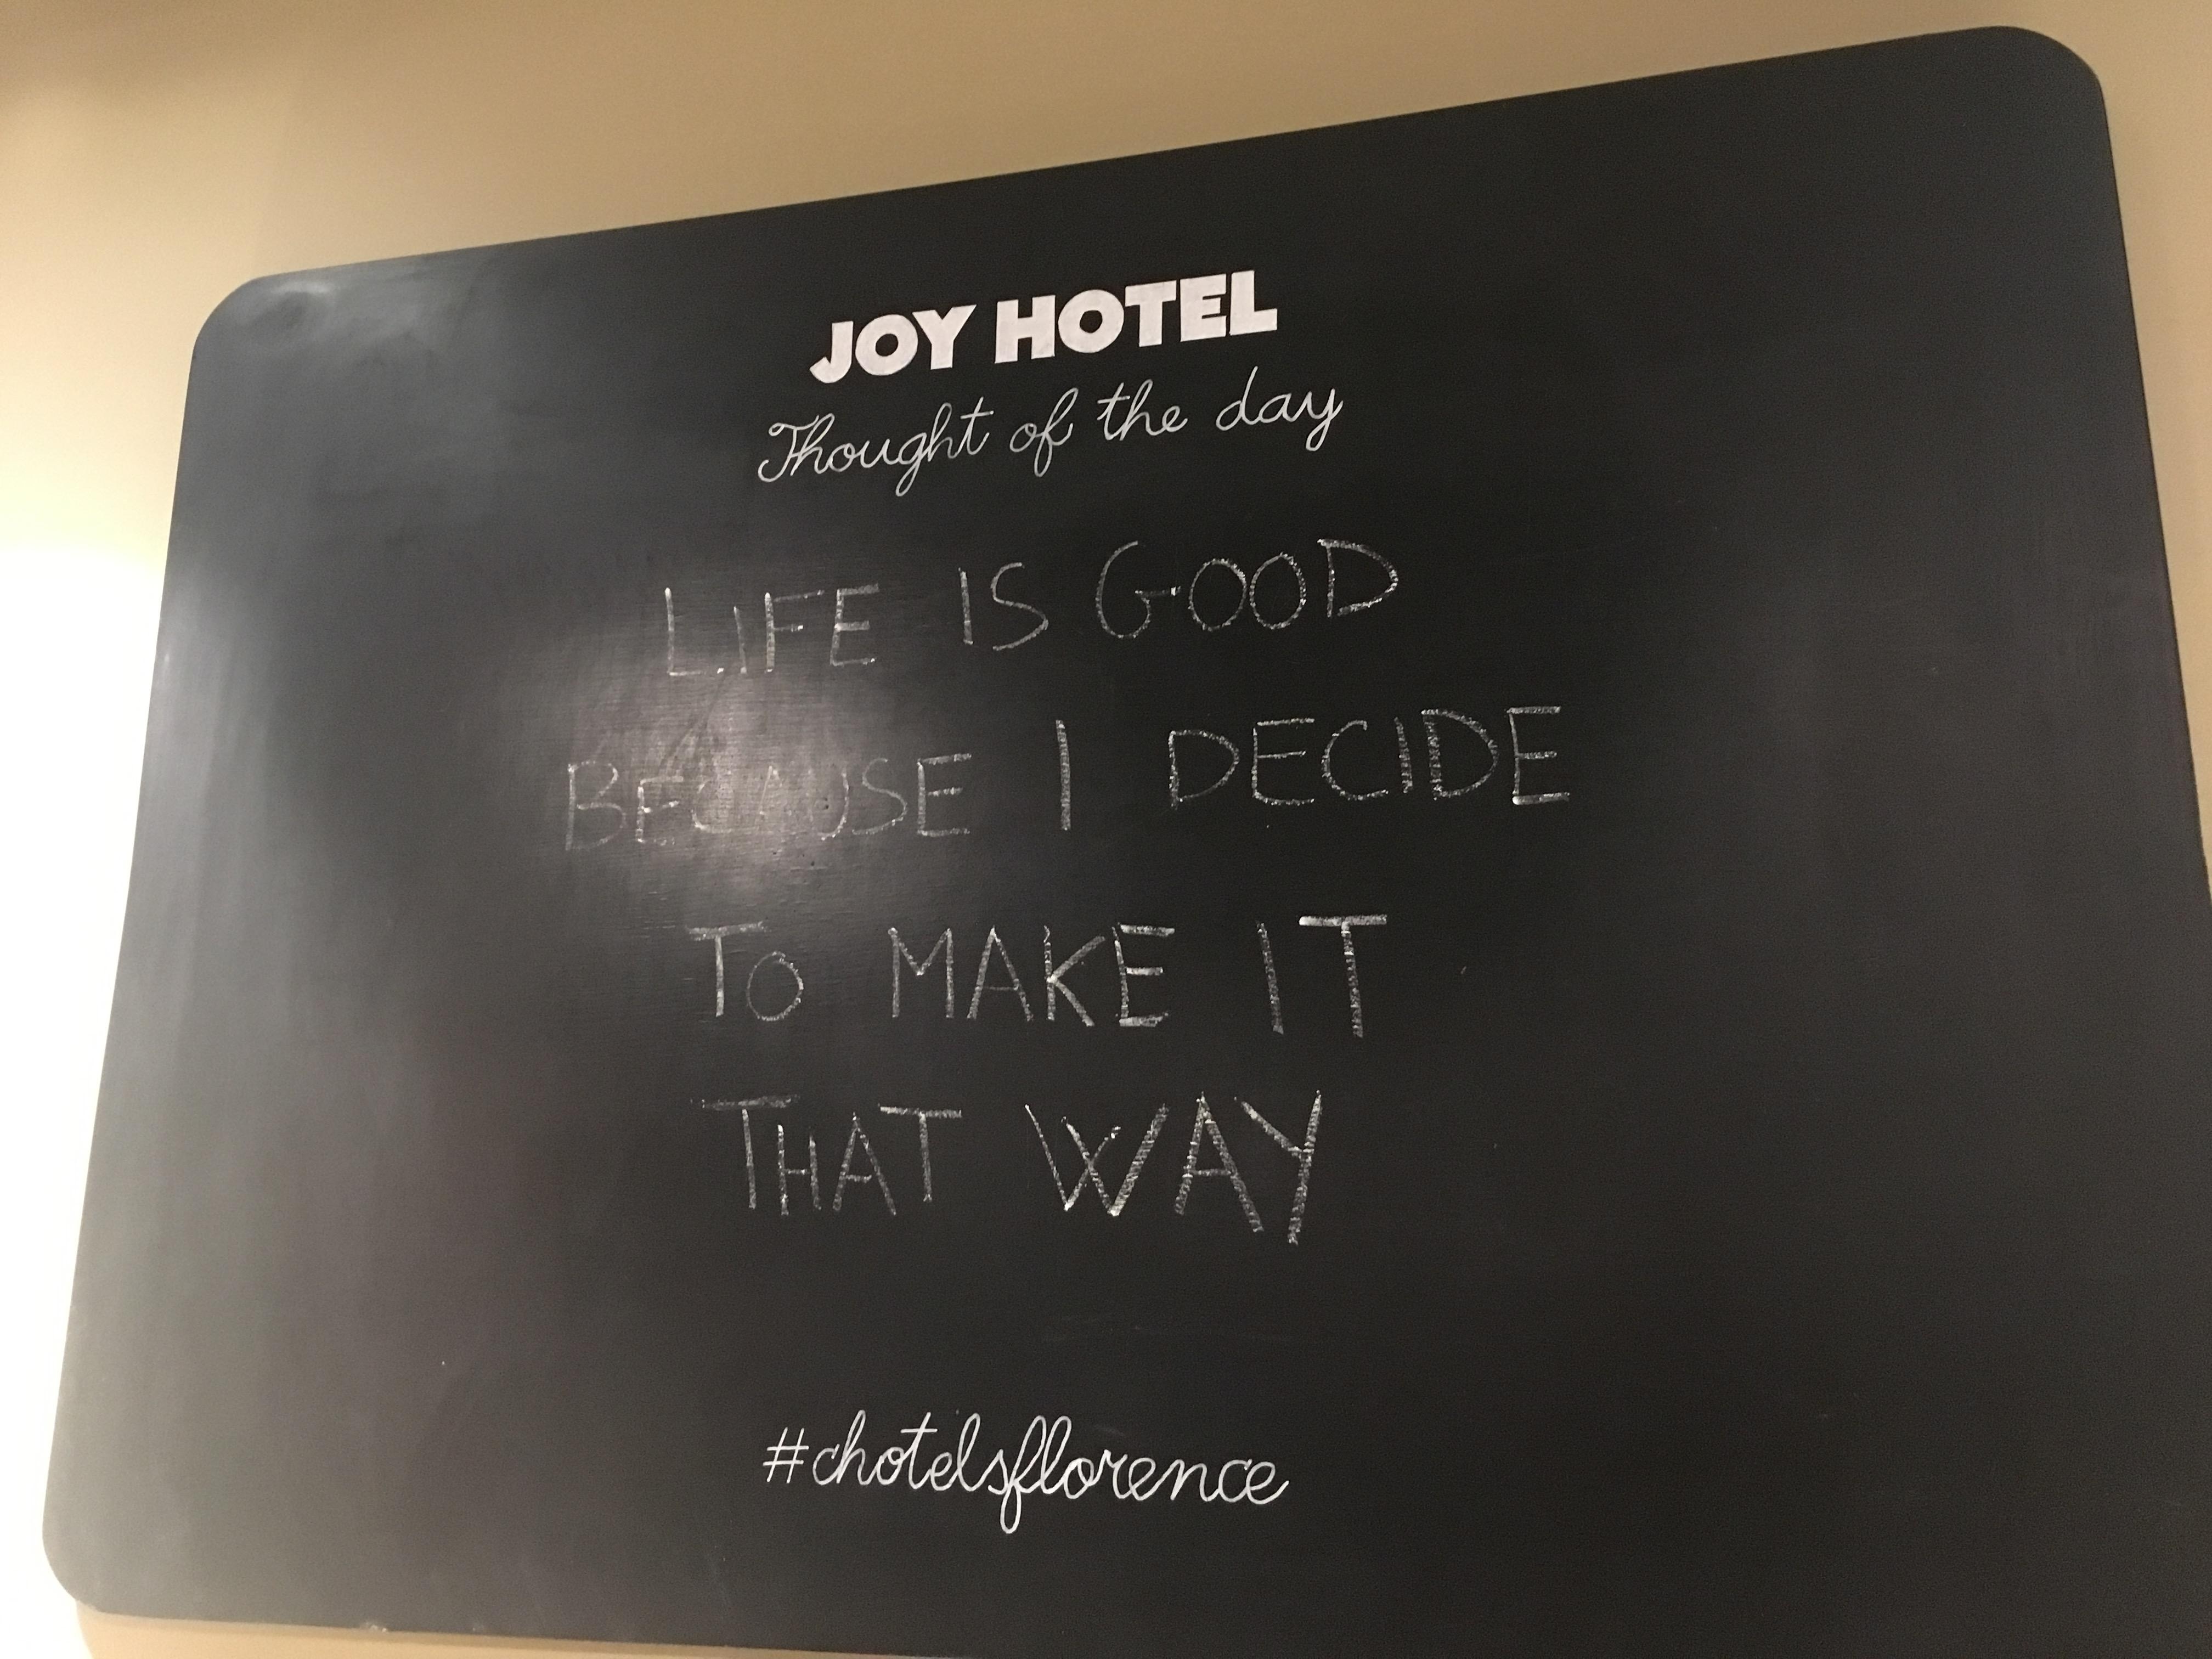 JOY HOTEL
Thought of the day
LIFE IS GOOD
BECAUSE I DECIDE
TO MAKE IT
THAT WAY
#chotelsflorence